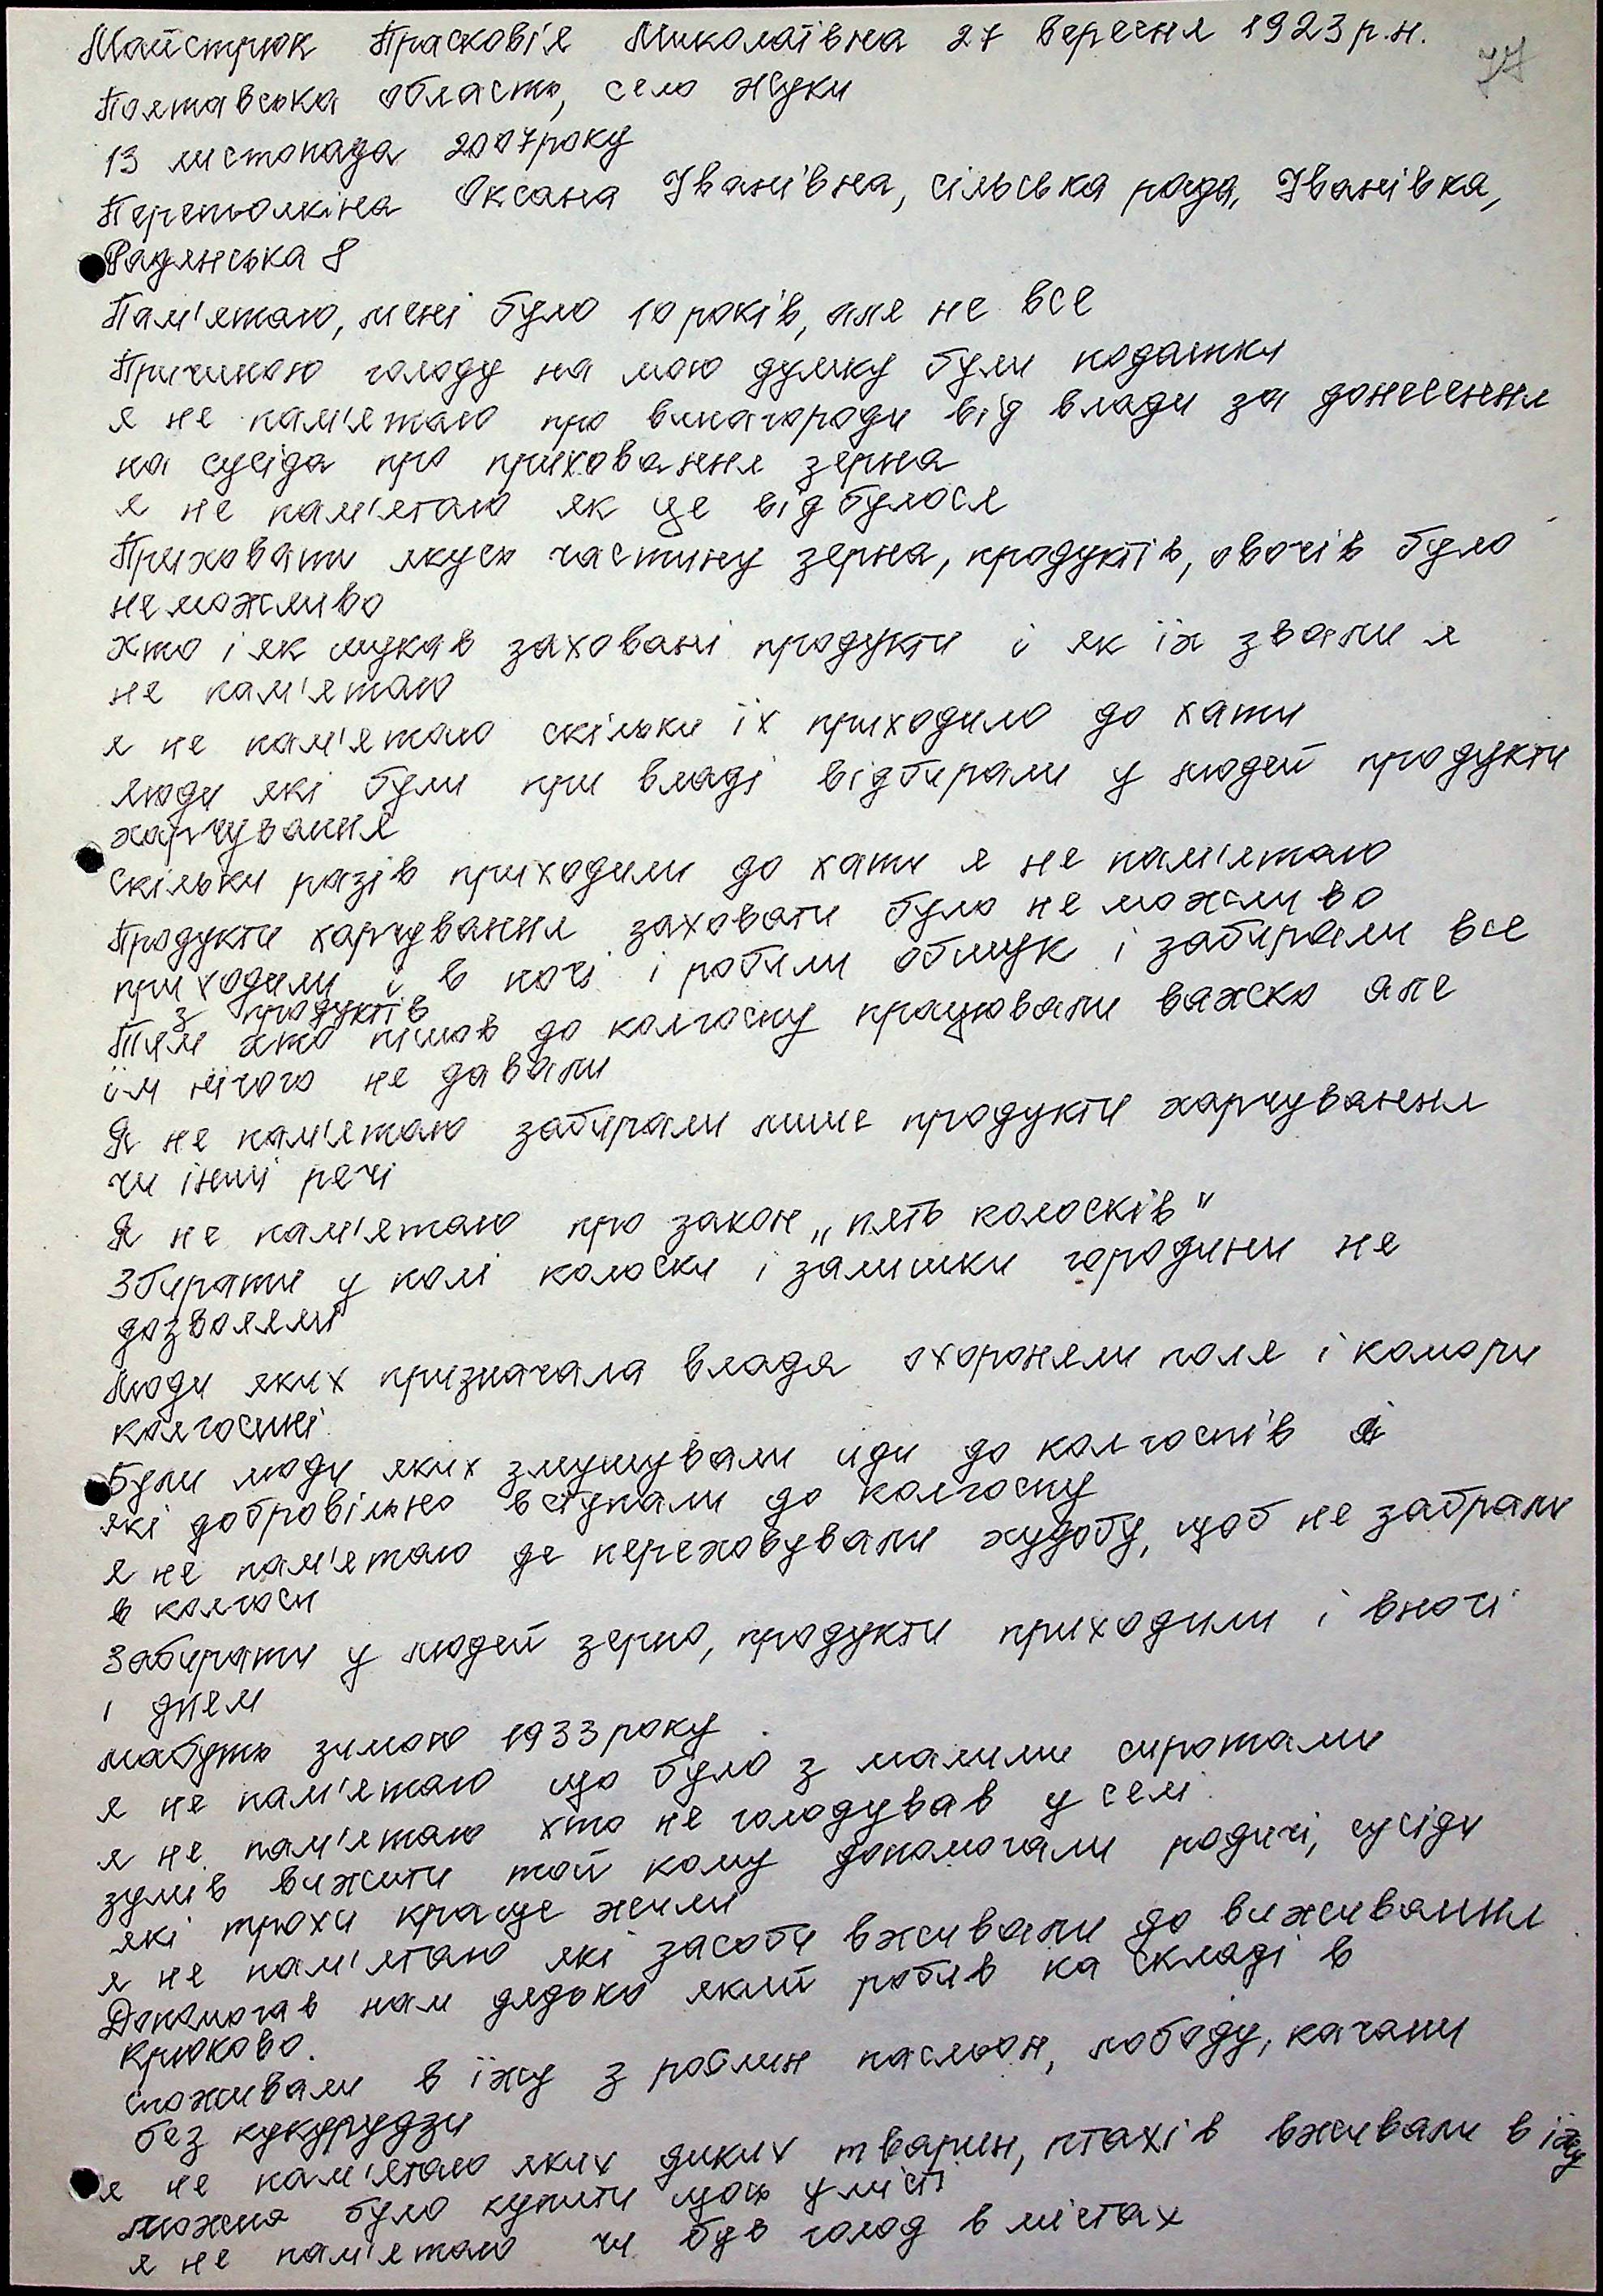 Майстрюк Прасковія Миколаївна 27 вересня 1923 р.н.
77
Полтавська область, село Жуки
13 листопада 2007 року
Перетьолкіна Оксана Іванівна, сільська рада, Іванівка,
Радянська 8
Пам'ятаю, мені було 10 років, але не все
Причиною голоду на мою думку були податки
я не пам'ятаю про винагороди від влади за донесення
на сусіда про приховання зерна
я не пам'ятаю як це відбулося
Приховати якусь частину зерна, продуктів, овочів було
неможливо
хто і як шукав заховані продукти і як їх звали я
не пам'ятаю
я не пам'ятаю скільки їх приходило до хати
люди які були при владі відбирали у людей продукти
харчування
скільки разів приходили до хати я не пам'ятаю
Продукти харчування заховати було не можливо
приходили і в ночі і робили обшук і забирали все
з продуктів
Тим хто пішов до колгоспу працювали важско але
їм нічого не давали
Я не пам'ятаю забирали лише продукти харчування
чи інші речі
Я не пам'ятаю про закон „пять колосків"
Збирати у полі колоски і залишки городини не
дозволяли
Люди яких призначала влада охороняли поля і комори
колгоспні.
Були люди яких змушували йди до колгоспів й
які добровільно вступали до колгоспу
я не пам'ятаю де переховували худобу, щоб не забрали
в колгосп
Забирати у людей зерно, продукти приходили і вночі
і днем
мабуть зимою 1933 року
я не пам'ятаю що було з малими сиротами
я не пам'ятаю хто не голодував у селі.
зумів вижити той кому допомогали родичі, сусіди
які трохи краще жили
я не пам'ятаю які засоби вживали до виживання
Допомогав нам дядько який робив на складі в
Крюково.
споживали в їжу з рослин пасльон, лободу, качани
без кукурудзи
я не пам'ятаю яких диких тварин, птахів вживали в їжу
можна було купити щось у місті
я не пам'ятаю чи був голод в містах